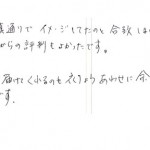 通りで イメージしてたのと 合致し
からの評判もよかったです。
届けてくれるのも
あわせに 余
です。